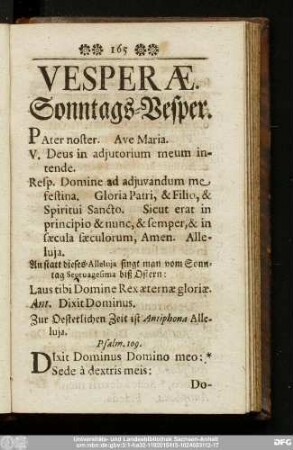 165
VESPERÆ.
Sonntags-Vesper.
PAter noster. Ave Maria.
V. Deus in adjutorium meum in-
tende.
Resp. Domine ad adjuvandum me
festina. Gloria Patri, & Filio, &
Spiritui Sancto. Sicut erat in
principio & nunc, & semper, & in
sæcula sæculorum, Amen. Alle-
luja.
An statt dieses Alleluja singt man vom Sonn-
tag Septuagesima biß Ostern:
Laus tibi Domine Rex æternæ gloriæ.
Ant. Dixit Dominus.
Zur Oesterlichen Zeit ist Antiphona Alle-
luja.
Psalm. 109.
DIxit Dominus Domino meo: *
Sede à dextris meis:
Do-
Universitäts- und Landesbibliothek Sachsen-Anhalt
DFG